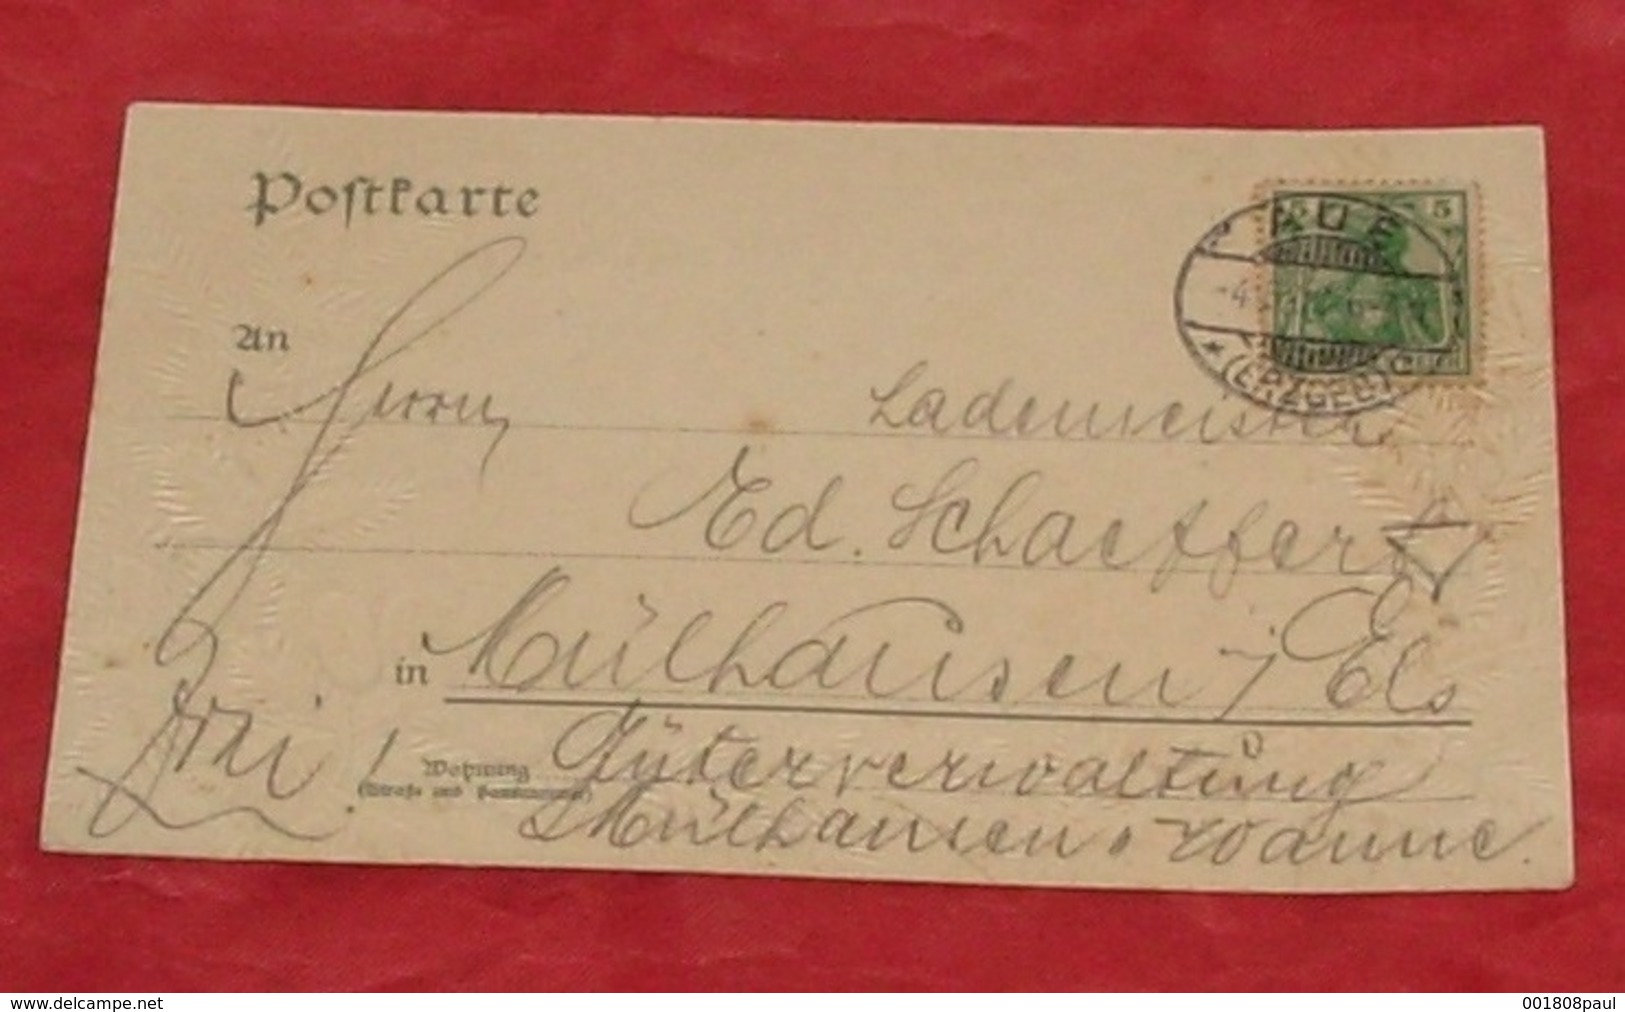 Postkarte
5
AUE
-4.
* (ERZGEB.)
An
Herrn Lademeister
Ed. Schaeffer
in Mülhausen i/Els
Frei!
Wohnung
(Straße und Hausnummer)
Güterverwaltung
Mülhausen
www.delcampe.net
001808paul